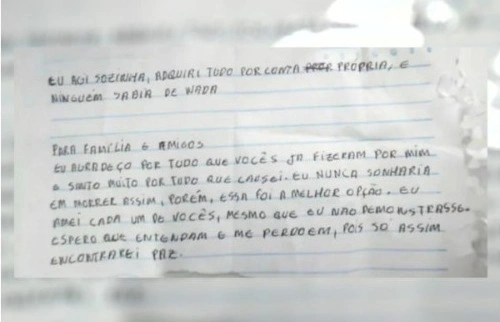 EU AGI SOZINHA, ADQUIRI TUDO POR CONTA PRÓPRIA, E
NINGUÉM SABIA DE NADA
PARA FAMÍLIA E AMIGOS
EU AGRADEÇO POR TUDO QUE VOCÊS JÁ FIZERAM POR MIM
E SINTO MUITO POR TUDO QUE CAUSEI. EU NUNCA SONHARIA
EM MORRER ASSIM, PORÉM, ESSA FOI A MELHOR OPÇÃO. EU
AMEI CADA UM DE VOCÊS, MESMO QUE EU NÃO DEMONSTRASSE.
ESPERO QUE ENTENDAM E ME PERDOEM, POIS SÓ ASSIM
ENCONTRAREI PAZ.